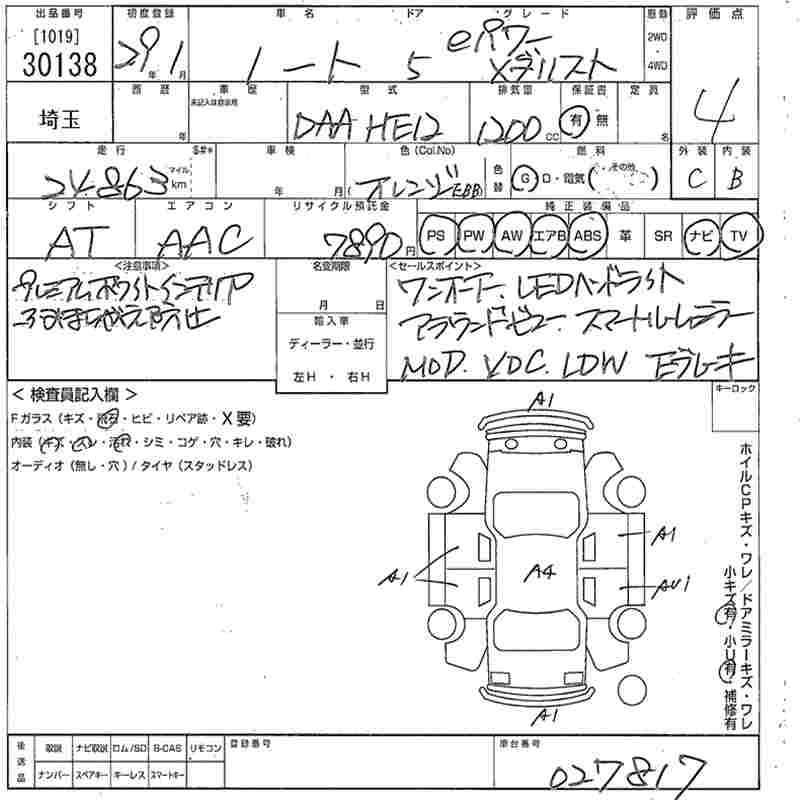 出品番号 初度登録 車名 ドア グレード 駆動 評価点
[1019]
30138
29年 1月
ノート 5 eパワー
メダリスト
2WD
・
4WD
4
埼玉
西暦 車歴 型式 排気量 保証書 定員
年
未記入は自家用
DAA HE12 1200cc 有 無 名
走行 $#* 車検 色(Col.No) 色替 燃料 外装 内装
24.863 マイル km
年 月 (オレンジEBB)
G・D・電気(・その他 )
C B
シフト エアコン リサイクル預託金 純正装備品
AT AAC 7890円
PS PW AW エアB ABS 革 SR ナビ TV
<注意事項> 名変期限 <セールスポイント>
プレミアムホワイトインテリア
ふみまちがえ防止
月 日
輸入車
ディーラー・並行
左H・右H
ワンオーナー. LEDヘッドライト
アラウンドビュー. スマートルームミラー
MOD. VDC. LDW Eブレーキ
<検査員記入欄>
キーロック
Fガラス(キズ・飛石・ヒビ・リペア跡・X要)
内装(キズ・スレ・汚れ・シミ・コゲ・穴・キレ・破れ)
オーディオ(無し・穴)/タイヤ(スタッドレス)
A1
A1
A1
A4
AU1
A1
ホイルCPキズ・ワレ/ドアミラーキズ・ワレ
小キズ有・小U有・補修有
後送品 取説 ナビ取説 ロム/SD B-CAS リモコン 登録番号 車台番号
ナンバー スペアキー キーレス スマートキー
027817